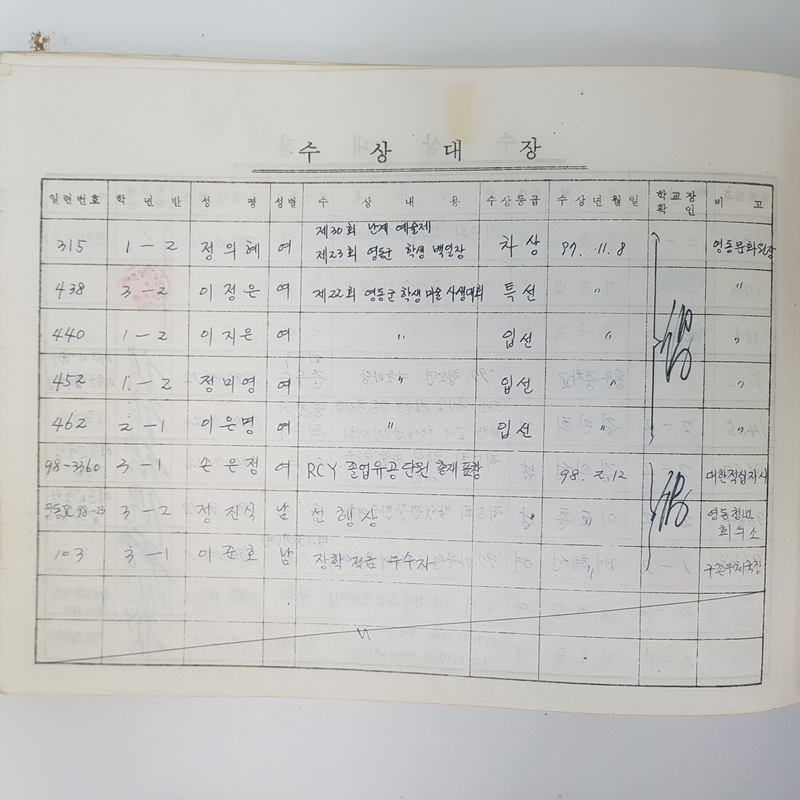 수 상 대 장
일련번호 학 년 반 성 명 성별 수 상 내 용 수상등급 수 상 년 월 일 학교장 확 인 비 고
315 1-2 정의혜 여 제30회 난계 예술제 제23회 영동군 학생 백일장 차상 97. 11. 8 영동문화원장
438 3-2 이정은 여 제22회 영동군 학생미술 사생대회 특선 〃 〃
440 1-2 이지은 여 〃 입선 〃 〃
452 1-2 정미영 여 〃 입선 〃 〃
462 2-1 이은명 여 〃 입선 〃 〃
98-3360 3-1 손은정 여 RCY 졸업유공단원 총재표창 98. 2. 12 대한적십자사
98-23 3-2 정진식 남 선행상 〃 영동청년회의소
103 3-1 이준호 남 장학적금 우수자 〃